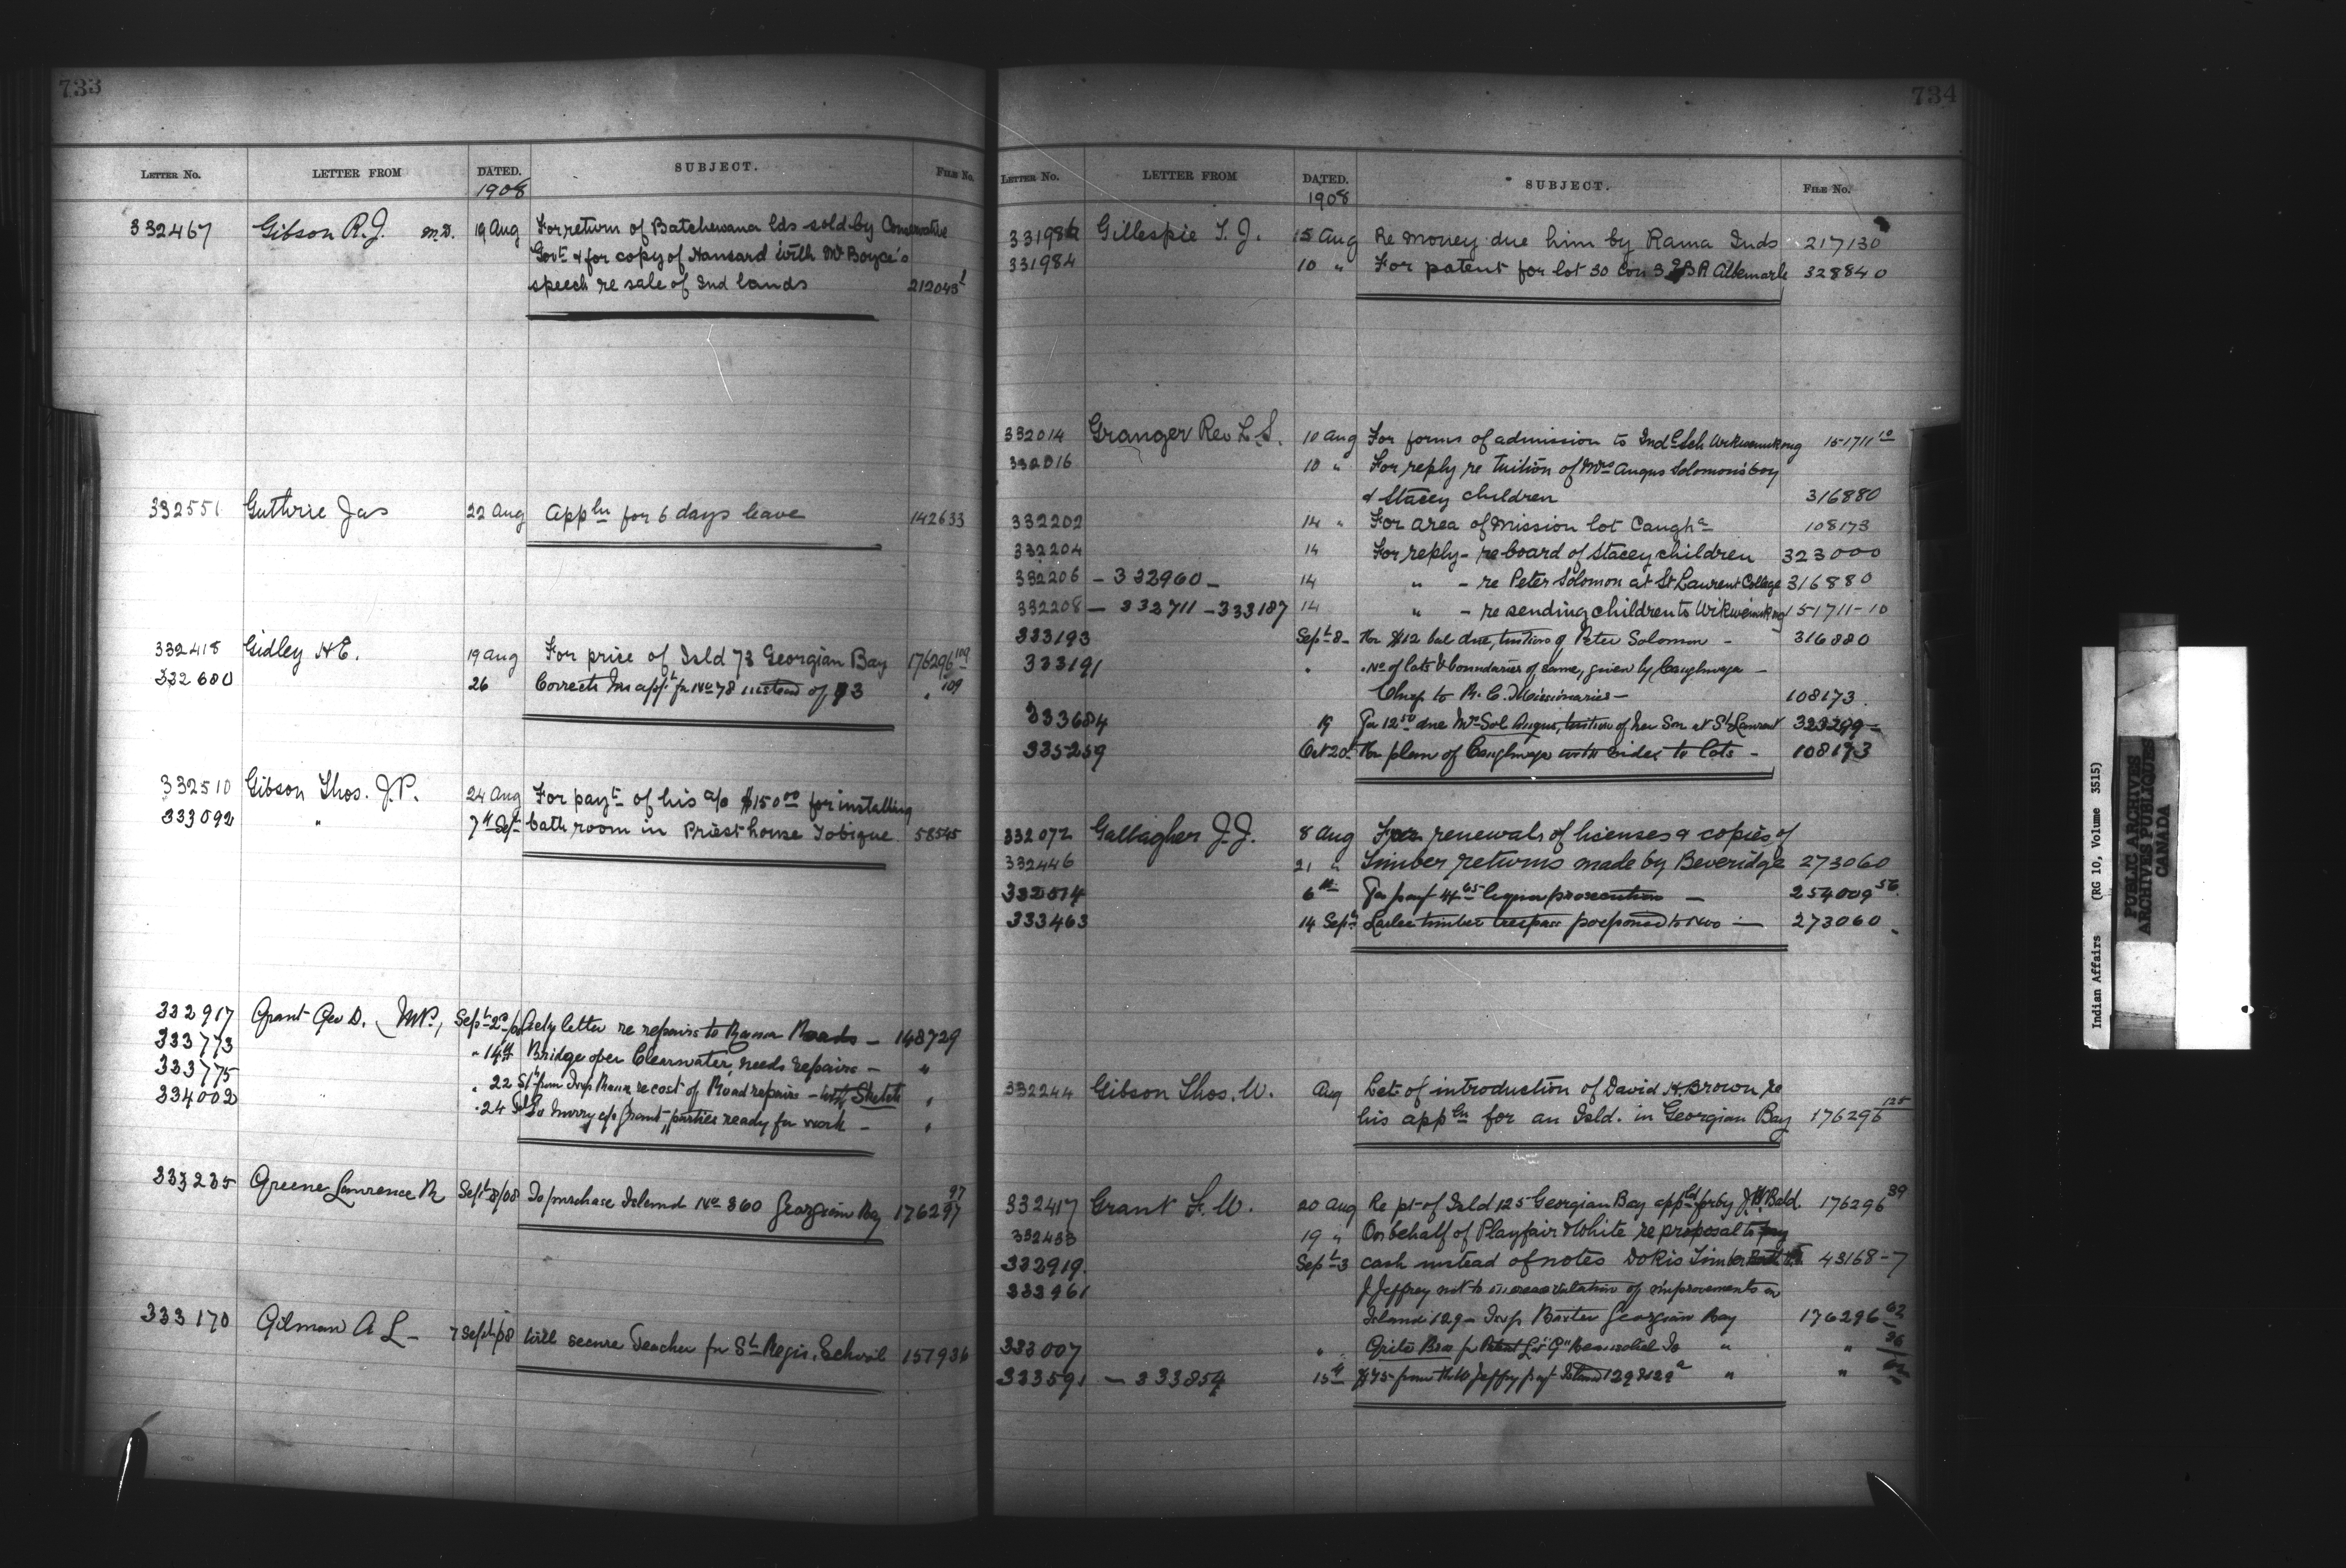 733
LETTER No. LETTER FROM DATED. SUBJECT. FILE No.
1908
332467 Gibson R.J. M.D. 19 Aug For return of Batchewana lds sold by Conservative
Govt & for copy of Hansard with Mr Boyce's
speech re sale of Ind lands 212043
332551 Guthrie Jas 22 Aug Appln for 6 days leave 142633
332418 Gidley H.E. 19 Aug For price of Isld 73 Georgian Bay 176296 109
332680 26 Corrects his applt for No 78 instead of 73 " 109
332510 Gibson Thos. J.P. 24 Aug For payt of his a/c $150.00 for installing
333092 " 7th Sept bath room in Priest house Tobique 58545
332917 Grant Geo D. M.P., Sept 2nd/08 Acly letter re repairs to Rama Roads — 148729
333773 " 14th Bridge over Clearwater, needs repairs — "
333775 " 22 from Insp re cost of Road repairs – with Sketch "
334002 " 24 To hurry Grant, parties ready for work — "
333235 Greene Lawrence R Sept 8/08 To purchase Island No 360 Georgian Bay 176297 97
333170 Gilman A L — 7 Sept/08 Will secure Teacher for St Regis School 157936
734
LETTER No. LETTER FROM DATED. SUBJECT. FILE No.
1908
331986 Gillespie T. J. 15 Aug Re money due him by Rama Inds 217130
331984 10 " For patent for lot 30 Con 3 EBR Albemarle 328840
332014 Granger Rev L.S. 10 Aug For forms of admission to Indl Sch Wikwemikong 151711 10
332016 10 " For reply re tuition of Mrs Angus Solomon's boy
& Stacey children 316880
332202 14 " For area of Mission lot Caugha 108173
332204 14 For reply – re board of Stacey children 323000
332206 – 332960 – 14 " – re Peter Solomon at St Laurent College 316880
332208 – 332711 – 333187 14 " – re sending children to Wikwemikong 151711-10
333193 Sept 8 – For $12 bal due, tuition of Peter Solomon – 316880
333191 " No of lots & boundaries of same, given by Caughnaga —
Chief to R. C. Missionaries — 108173
333684 19 For 12.50 due Mrs Sol Angus, tuition of her Son at St Laurent 323299 –
335259 Oct 20 For plan of Caughnaga with index to lots – 108173
332072 Gallagher J.J. 8 Aug For renewals of licenses & copies of
332446 21 " Timber returns made by Beveridge 273060
332074 6th For payt 4.65 liquor prosecution — 254009 56
333463 14 Sept timber trespass postponed — 273060
332244 Gibson Thos. W. Aug Let of introduction of David H. Brown, re
his appln for an Isld. in Georgian Bay 176296 125
332417 Grant F. W. 20 Aug Re pt of Isld 125 Georgian Bay appld for by J.W. Bald 176296 39
332433 19 " On behalf of Playfair & White re proposal to pay
332919 Sept 3 cash instead of notes Dokis Timber 43168-7
332961 J Jeffrey not to valuation of improvements on
Island 129 – Insp Baxter Georgian Bay 176296 62
333007 " " "
333591 — 333854 15th $75 from Jeffrey payt Island 129 & 129a " "
Indian Affairs (RG 10, Volume 3515)
PUBLIC ARCHIVES
ARCHIVES PUBLIQUES
CANADA